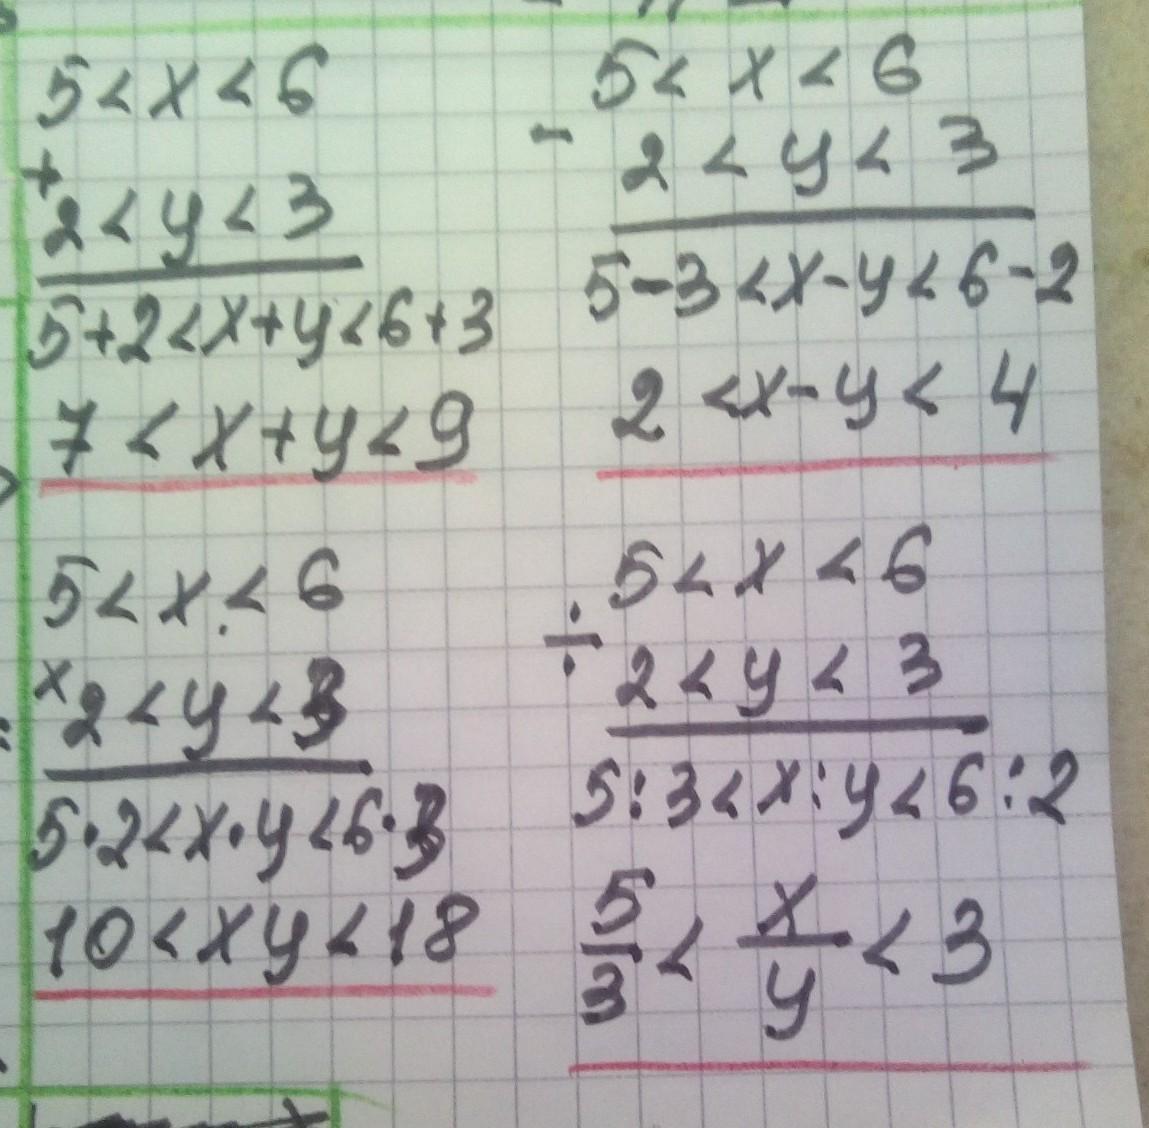 5 < x < 6
+
2 < y < 3
5+2 < x+y < 6+3
7 < x+y < 9
5 < x < 6
-
2 < y < 3
5-3 < x-y < 6-2
2 < x-y < 4
5 < x < 6
x
2 < y < 3
5·2 < x·y < 6·3
10 < xy < 18
5 < x < 6
÷
2 < y < 3
5:3 < x:y < 6:2
5/3 < x/y < 3